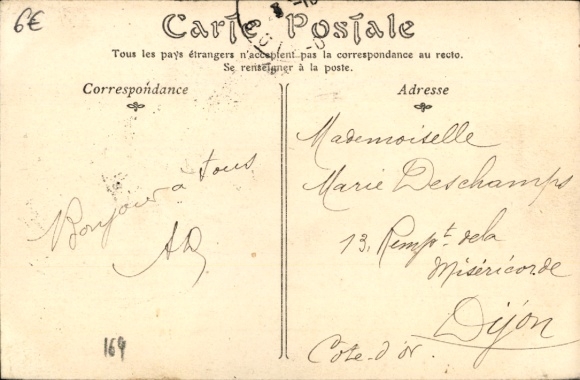 6€
Carte Postale
Tous les pays étrangers n'acceptent pas la correspondance au recto.
Se renseigner à la poste.
Correspondance
Adresse
Bonjour à tous
AD
Mademoiselle
Marie Deschamps
13, Remp.t de la
Miséricorde
Dijon
Cote-d'or.
169